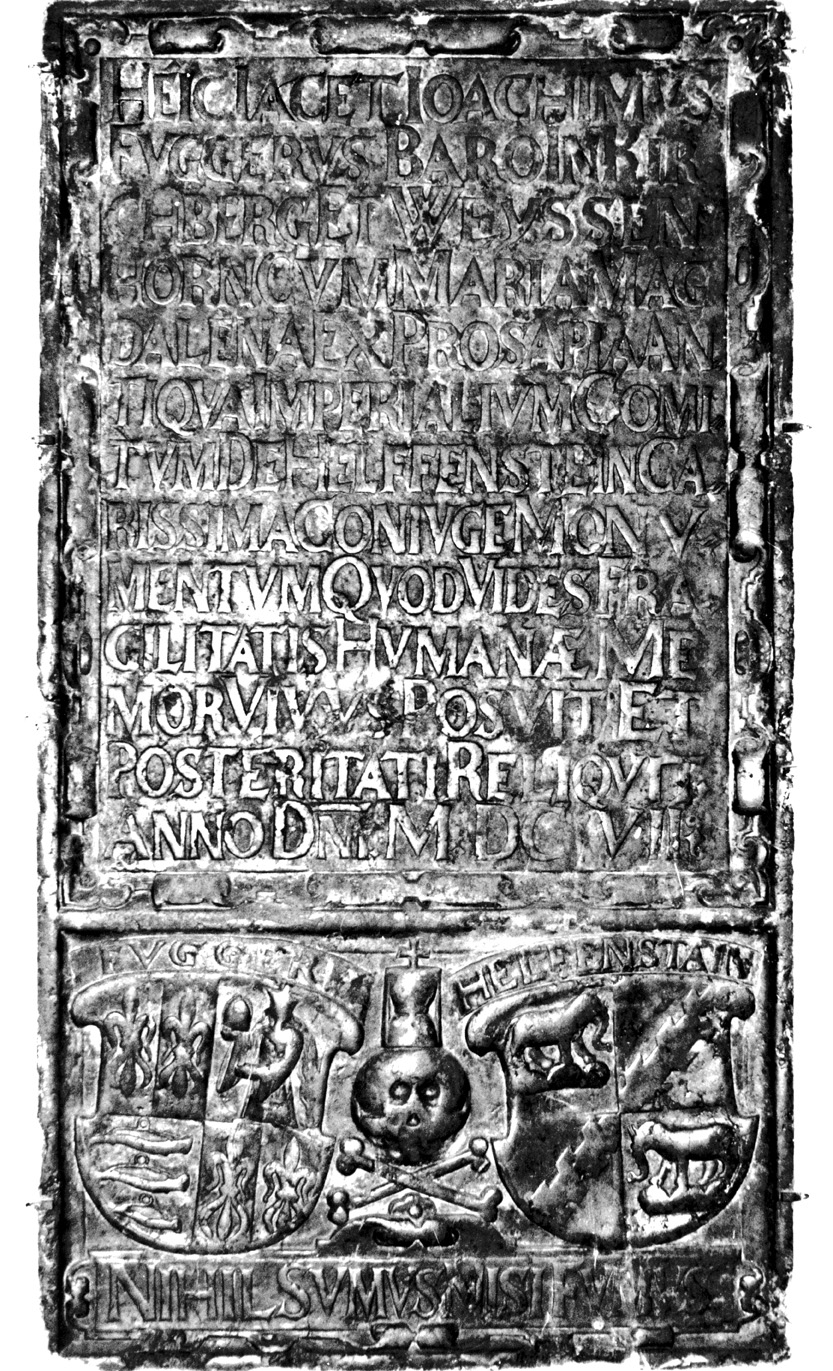 HEIC IACET IOACHIMVS
FVGGERVS BARO IN KIR
CHBERG ET WEYSSEN
HORN CVM MARIA MAG
DALENA EX PROSAPIA AN
TIQVA IMPERIALIVM COMI
TVM DE HELFFENSTEIN CA
RISSIMA CONIVGE MONV
MENTVM QVOD VIDES FRA
GILITATIS HVMANÆ ME
MOR VIVVS POSVIT ET
POSTERITATI RELIQVIT
ANNO DNI M DC VII
FVGGERI
HELFFENSTAIN
NIHIL SVMVS NISI FVMVS